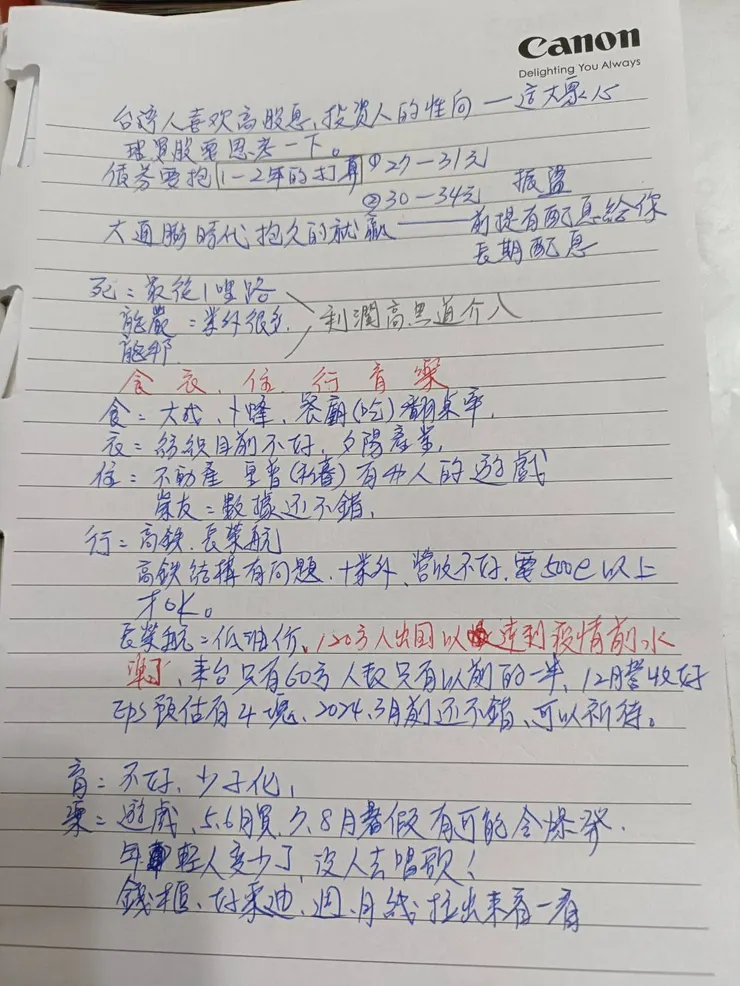 Canon
Delighting You Always
台湾人喜欢高股息,投资人的性向—這大票人
買股票思考一下。
債券要抱1-2年的打算 ①27-31元
②30-34元 振盪
大通膨時代抱久的就贏——前提有配息給你
長期配息
死:最後1哩路
龍巖:業外很多 利潤高黑道介入
龍邦
食 衣、住、行 育 樂
食:大成、卜蜂、餐廳(吃)翻桌率,
衣:紡织目前不好,夕陽產業,
住:不動產 有錢人的遊戲
崇友:數據还不錯,
行:高鉄、長榮航
高鉄結構有問題,十業外、營收不好,要500e以上
才OK。
長榮航:低油价、120万人出国以達到疫情前水
準了,來台只有60万人数只有以前的一半,12月營收好
EPS预估有4塊、2024、3月前还不錯、可以祈待。
育:不好,少子化,
樂:遊戲、5、6月買、7、8月暑假有可能会爆發.
年輕人变少了,沒人去唱歌!
錢柜、好樂迪、週、月线拉出來看一看